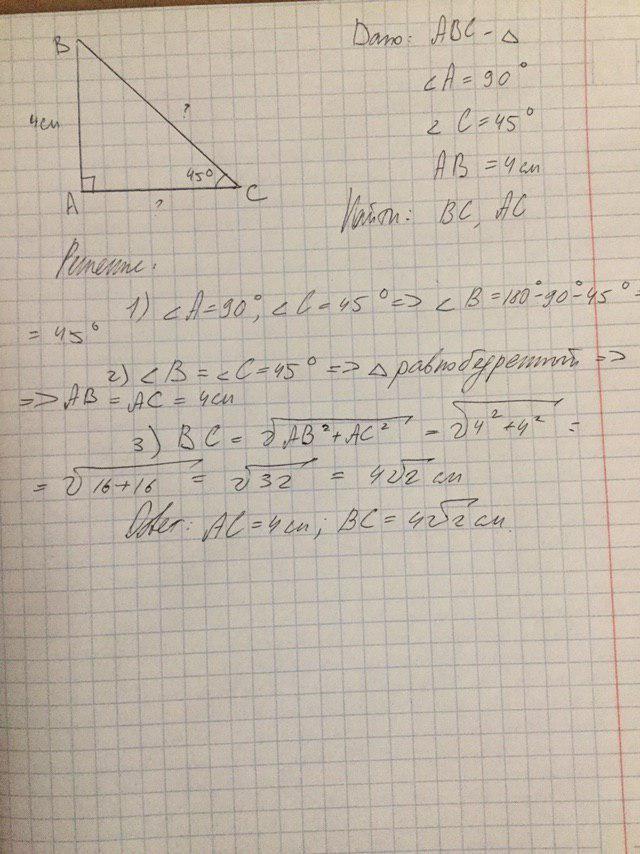 B
4см
?
45°
A
?
C
Дано: ABC - △
∠A = 90°
∠C = 45°
AB = 4см
Найти: BC, AC
Решение:
1) ∠A = 90°, ∠C = 45° => ∠B = 180°-90°-45° =
= 45°
2) ∠B = ∠C = 45° => △ равнобедренный =>
=> AB = AC = 4см
3) BC = √AB²+AC² = √4²+4² =
= √16+16 = √32 = 4√2 см
Ответ: AC = 4см; BC = 4√2 см.